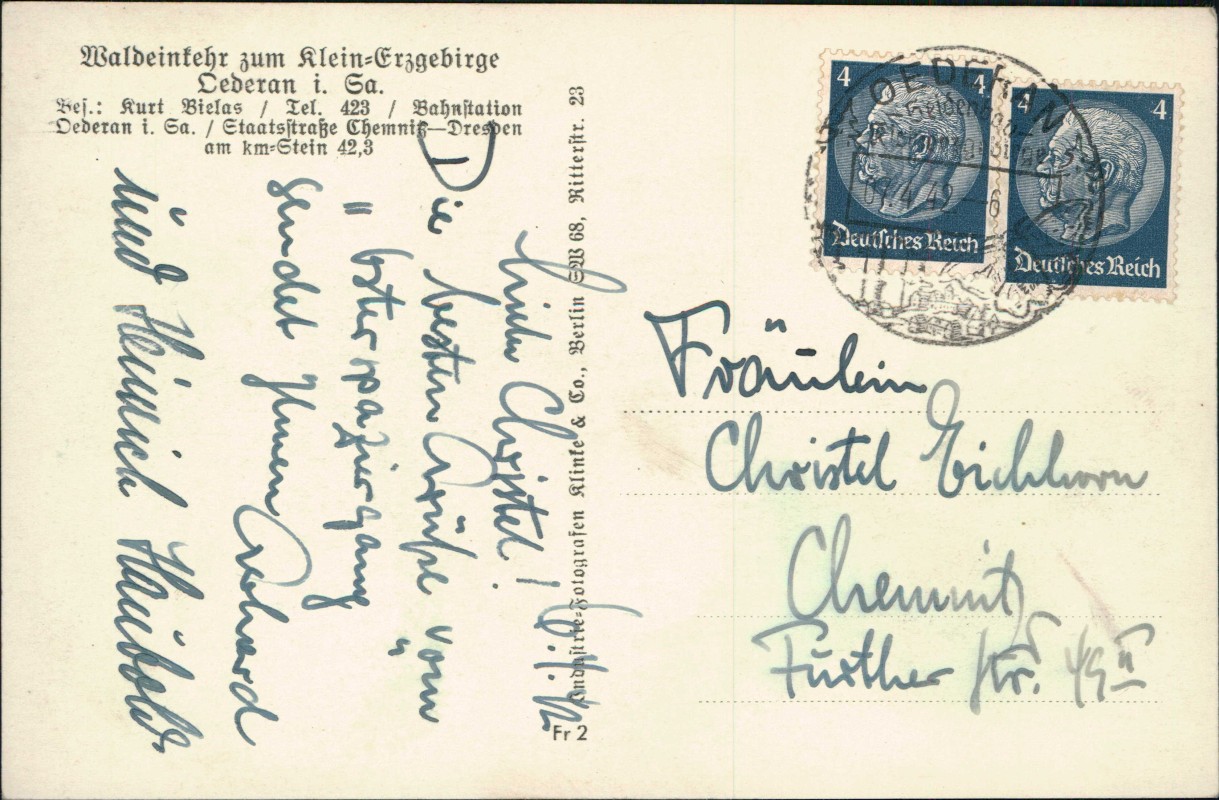 Waldeinkehr zum Klein-Erzgebirge
Oederan i. Sa.
Bes.: Kurt Bielas / Tel. 423 / Bahnstation
Oederan i. Sa. / Staatsstraße Chemnitz—Dresden
am km-Stein 42,3
Industrie-Fotografen Klinke & Co., Berlin SW 68, Ritterstr. 23
Fr 2
4 4
Deutsches Reich
4 4
Deutsches Reich
OEDERAN
4.42 - 6
Liebe Christel!
Die besten Grüße vom
" Osterspaziergang "
sendet Ihnen Gerhard
und Heinrich
Fräulein
Christel Eichhorn
Chemnitz
Further Str. 49 II